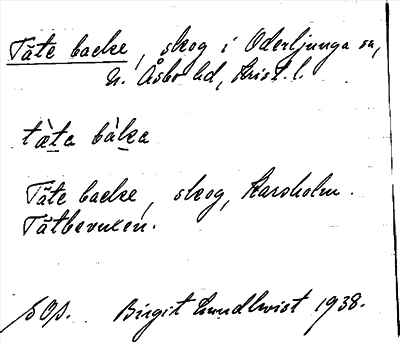 Täte backe, skog i Oderljunga sn,
N. Åsbo hd, Krist. l.
tæ̀ta bàka
Täte backe, skog, Karsholm.
Tätbevuxen.
Birgit Lundkvist 1938.